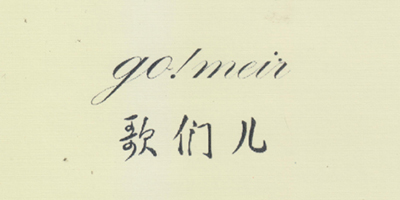 go!meir
歌们儿